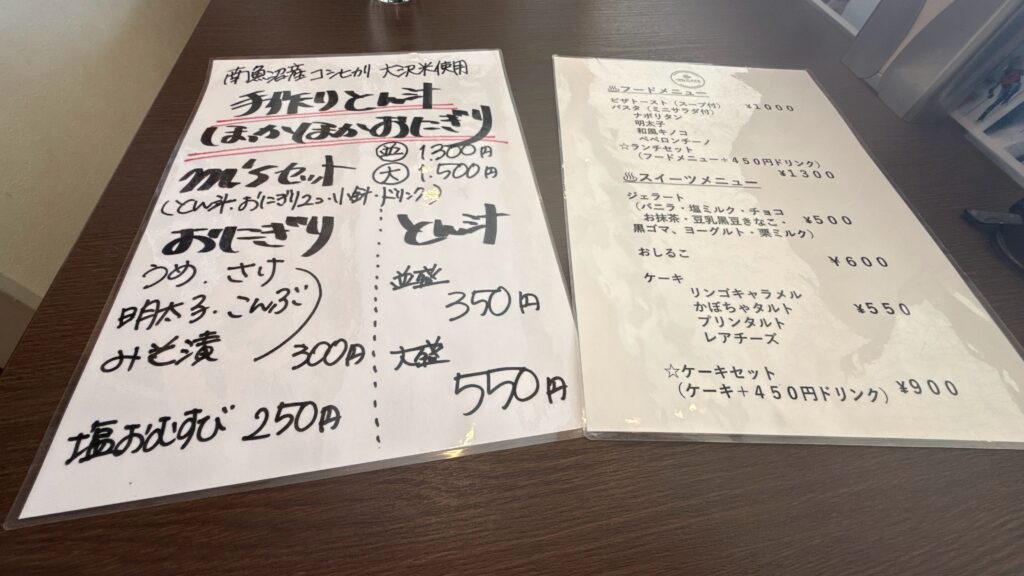 南魚沼産 コシヒカリ 大沢米使用
手作りとん汁
ほっかほかおにぎり
m'sセット 並 1.300円
大 1.500円
(とん汁・おにぎり2コ・小鉢・ドリンク)
おにぎり
うめ. さけ
明太子. こんぶ
みそ漬 300円
塩おむすび 250円
とん汁
並盛
350円
大盛
550円
♨フードメニュー
ピザトースト(スープ付) ¥1000
パスタ(ミニサラダ付)
ナポリタン
明太子
和風キノコ
ペペロンチーノ
☆ランチセット
(フードメニュー+450円ドリンク)
¥1300
♨スイーツメニュー
ジェラート
(バニラ・塩ミルク・チョコ
お抹茶・豆乳黒豆きなこ・ ¥500
黒ゴマ、ヨーグルト・栗ミルク)
おしるこ ¥600
ケーキ
リンゴキャラメル
かぼちゃタルト ¥550
プリンタルト
レアチーズ
☆ケーキセット
(ケーキ+450円ドリンク) ¥900